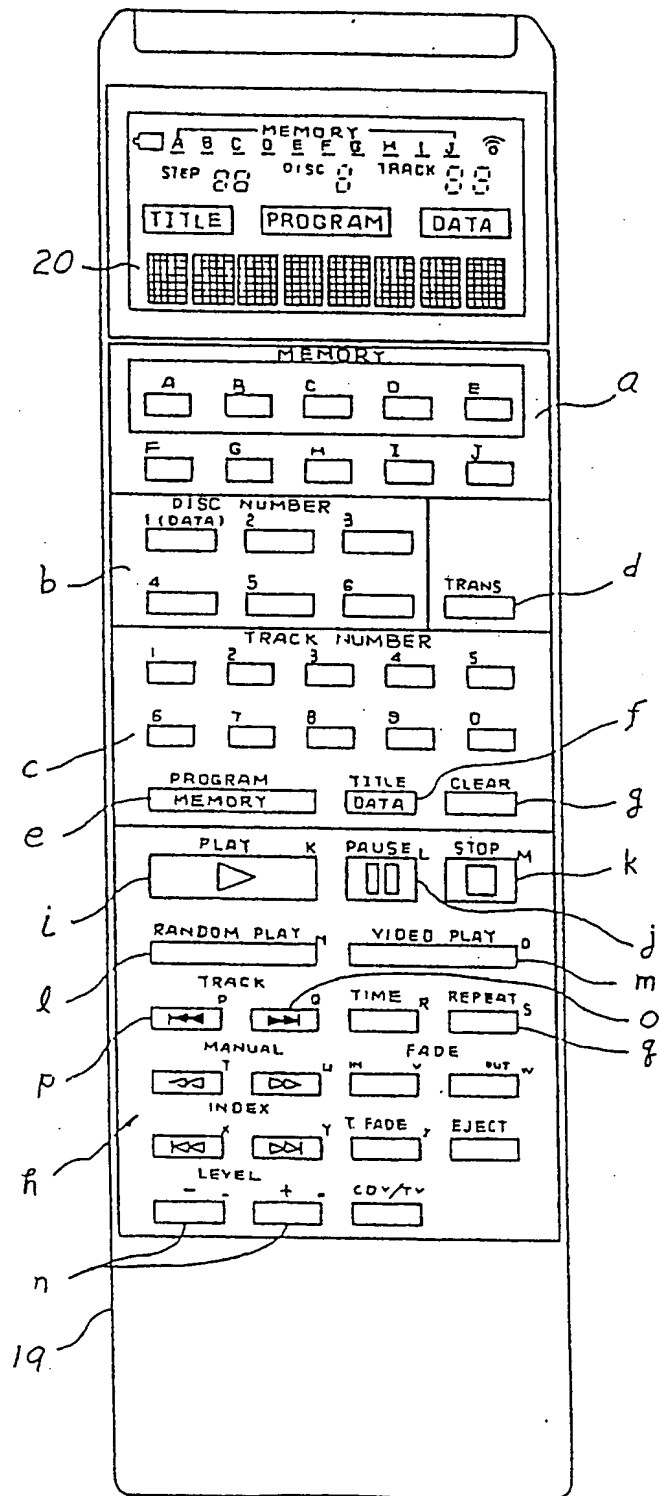 MEMORY
A B C D E F G H I J
STEP 88 DISC 8 TRACK 88
TITLE PROGRAM DATA
20
MEMORY
a
A B C D E
F G H I J
DISC NUMBER
1 (DATA) 2 3
b
d
4 5 6 TRANS
TRACK NUMBER
1 2 3 4 5
f
6 7 8 9 0
c
PROGRAM TITLE CLEAR
MEMORY DATA
g
e
PLAY K PAUSE L STOP M
k
i
j
RANDOM PLAY N VIDEO PLAY O
m
l
TRACK
o
P Q TIME R REPEAT S
q
p
MANUAL FADE
T U IN V OUT W
INDEX
h
X Y T. FADE EJECT
LEVEL
- - + - CDV/TV
n
19